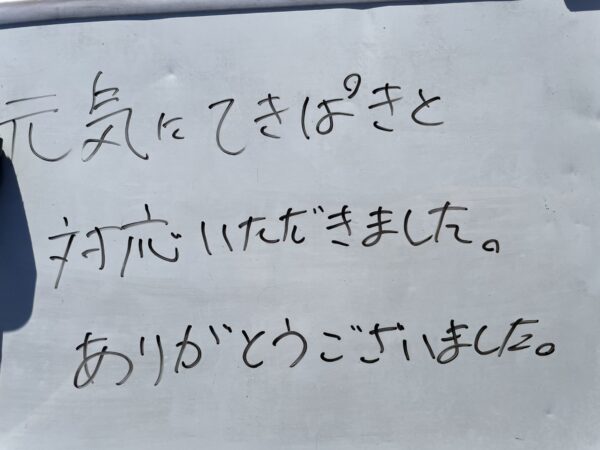 元気にてきぱきと
対応いただきました。
ありがとうございました。